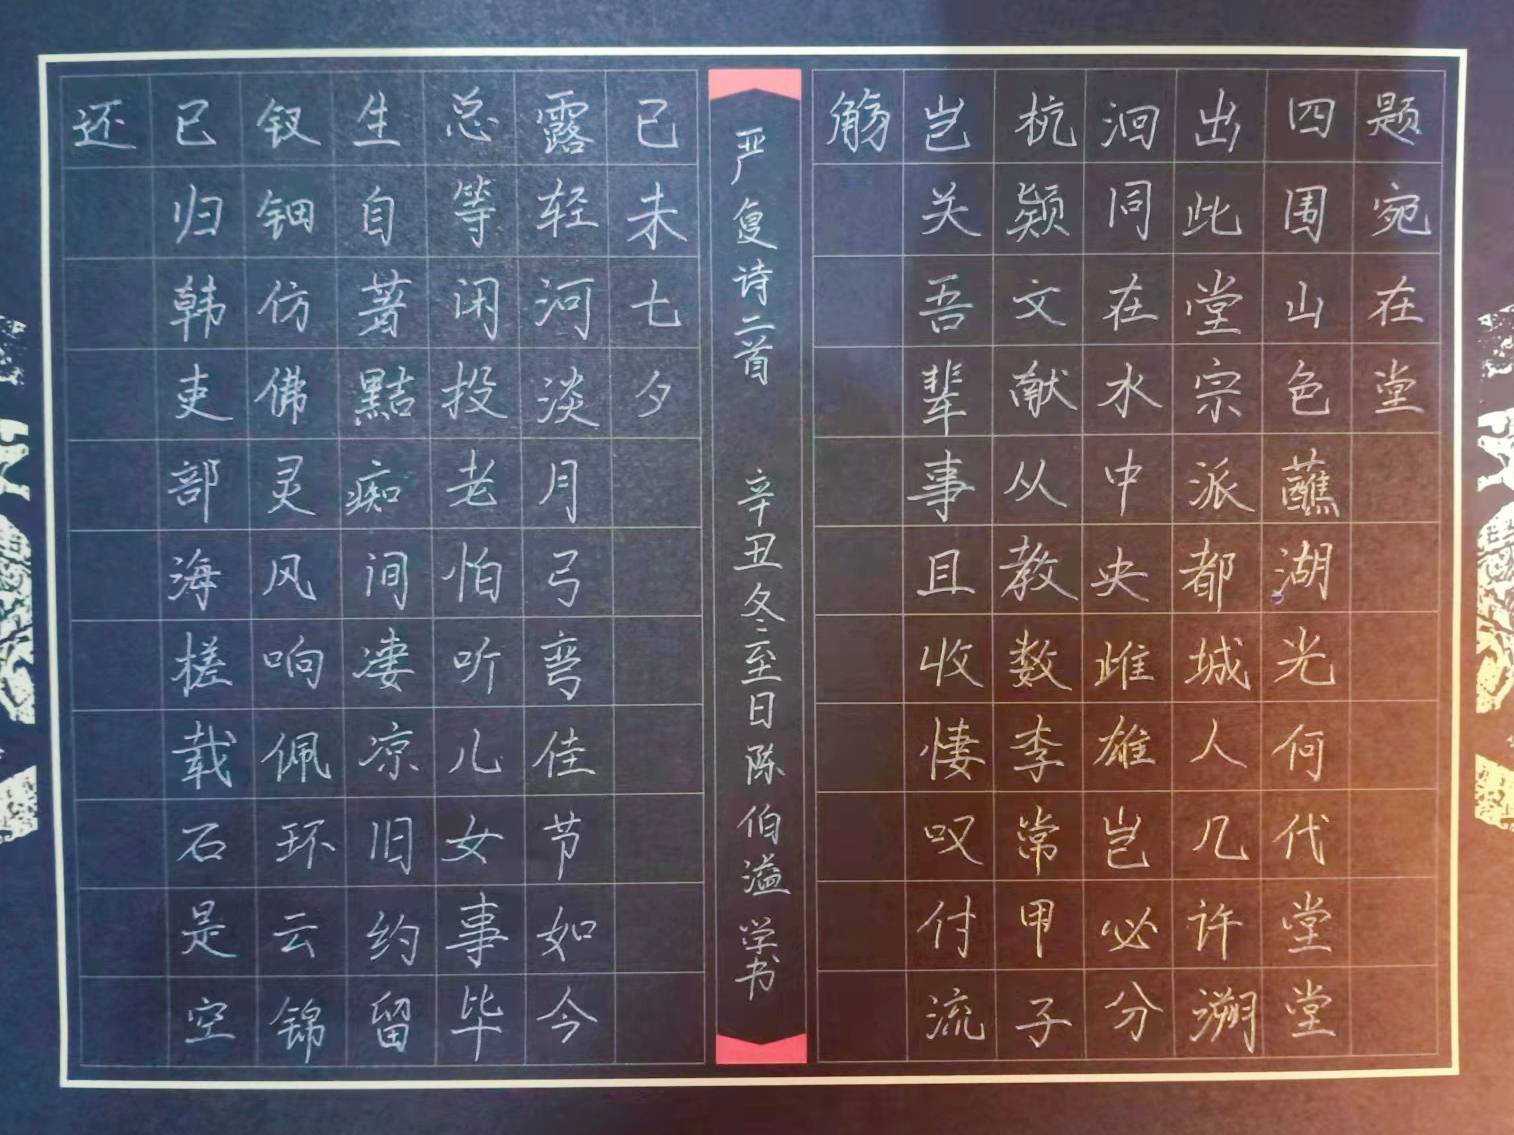 题宛在堂
四围山色蘸湖光何代堂堂
出此堂宗派都城人几许溯
洄同在水中央雌雄岂必分
杭颍文献从教数李常甲子
岂关吾辈事且收悽叹付流
觞
严复诗二首 辛丑冬至日陈伯溢学书
己未七夕
露轻河淡月弓弯佳节如今
总等闲投老怕听儿女事毕
生自著黠痴间凄凉旧约留
钗钿仿佛灵风响佩环云锦
已归韩吏部海槎载石是空
还